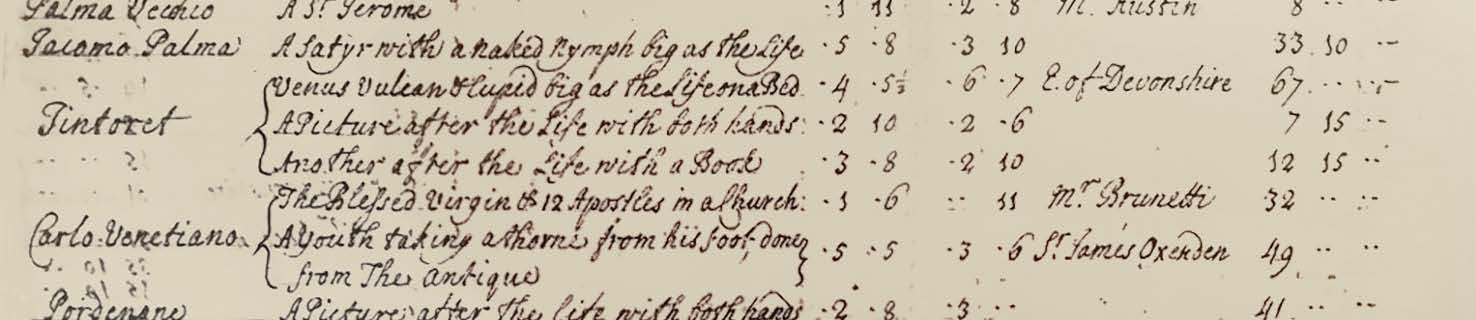 Palma Vecchio A St. Jerome ·1 11 ·2 ·8 M. Austin 8 ·· ··
Jacomo Palma A Satyr with a naked Nymph big as the Life ·5 ·8 ·3 10 33 10 ··
Venus Vulcan & Cupid big as the Life on a Bed ·4 ·5½ ·6 ·7 E. of Devonshire 67 ·· ··
Tintoret A Picture after the Life with both hands: ·2 10 ·2 ·6 7 15 ··
Another after the Life with a Book ·3 ·8 ·2 10 12 15 ··
The Blessed Virgin & 12 Apostles in a Church: ·1 ·6 ·· 11 Mr. Brunetti 32 ·· ··
Carlo Venetiano A Youth taking a thorne from his foot, done ·5 ·5 ·3 ·6 Sr. James Oxenden 49 ·· ··
from The Antique
Pordenone A Picture after the Life with both hands ·2 ·8 ·3 ·· 41 ·· ··